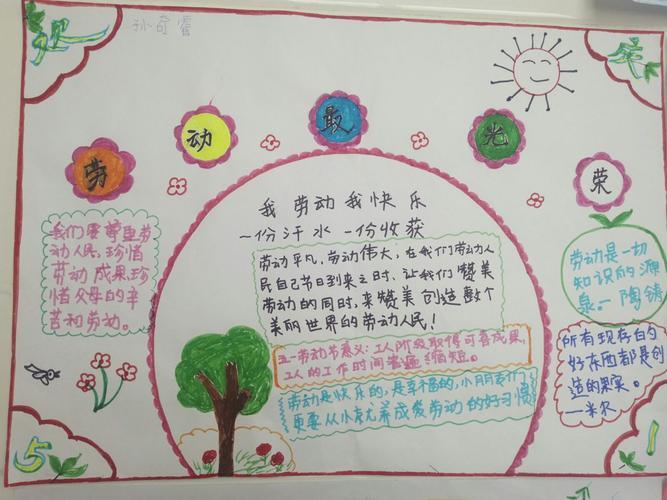 欢
庆
孙奇睿
劳
动
最
光
荣
我劳动我快乐
一份汗水一份收获
劳动平凡，劳动伟大，在我们劳动人
民自己节日到来之时，让我们赞美
劳动的同时，来赞美创造整个
美丽世界的劳动人民！
五一劳动节意义：工人阶级取得可喜成果，
工人的工作时间普遍缩短。
劳动是快乐的，是幸福的，小朋友们
更要从小就养成爱劳动的好习惯
我们要尊重劳
动人民，珍惜
劳动成果珍
惜父母的辛
苦和劳动。
劳动是一切
知识的源
泉。—陶铸
所有现存的
好东西都是创
造的果实。
—米尔
5
1